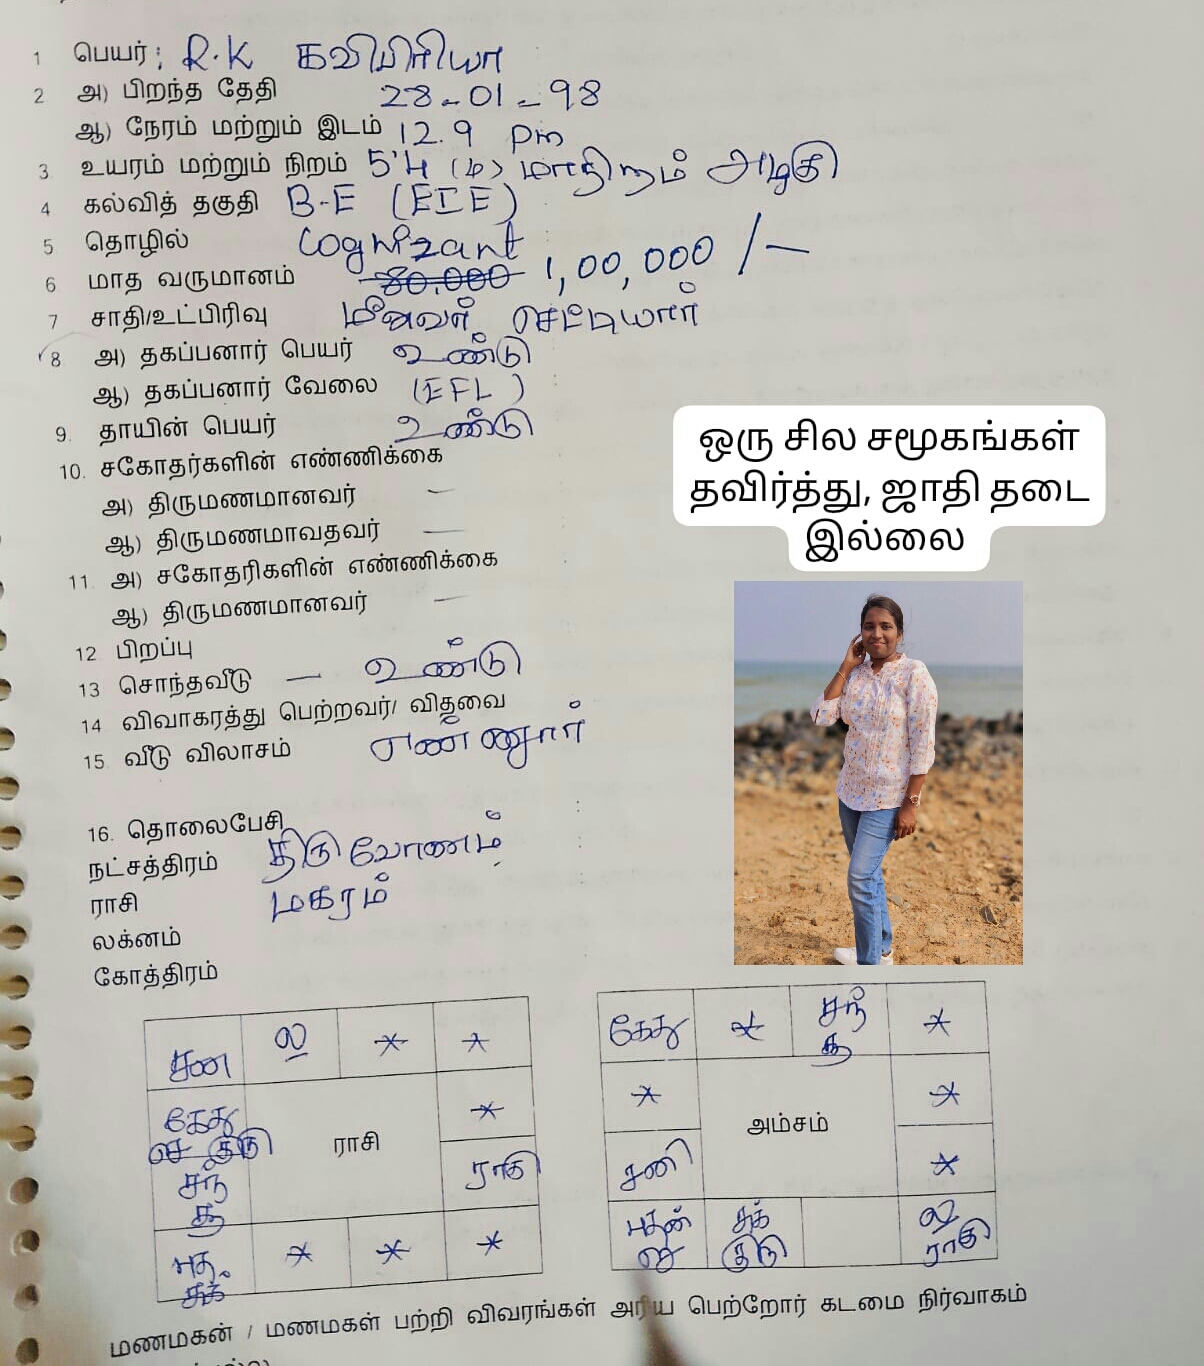 1 பெயர் : R.K கவிபிரியா
2 அ) பிறந்த தேதி 28-01-98
ஆ) நேரம் மற்றும் இடம் 12.9 pm
3. உயரம் மற்றும் நிறம் 5'4 (டி) மாநிறம் அழகு
4 கல்வித் தகுதி B-E (EIE)
5 தொழில் Cognizant
6 மாத வருமானம் 80,000 1,00,000 /-
7 சாதி/உட்பிரிவு மீனவர் செட்டியார்
8. அ) தகப்பனார் பெயர் உண்டு
ஆ) தகப்பனார் வேலை (EFL) :
9. தாயின் பெயர் உண்டு
10. சகோதர்களின் எண்ணிக்கை
அ) திருமணமானவர் —
ஆ) திருமணமாவதவர் —
11. அ) சகோதரிகளின் எண்ணிக்கை
ஆ) திருமணமானவர் —
12 பிறப்பு
13 சொந்தவீடு — உண்டு
14 விவாகரத்து பெற்றவர்/ விதவை
15. வீடு விலாசம் எண்ணூர்
16. தொலைபேசி
நட்சத்திரம் திருவோணம்
ராசி மகரம்
லக்னம்
கோத்திரம்
ஒரு சில சமூகங்கள்
தவிர்த்து, ஜாதி தடை
இல்லை
சனி ல * *
கேது *
செ குரு ராசி
சந் ராகு
சூ
புத * * *
சுக்
கேது * சந் *
சூ
* அம்சம் *
சனி *
புதன் சுக் ல
செ குரு ராகு
மணமகன் / மணமகள் பற்றி விவரங்கள் அறிய பெற்றோர் கடமை நிர்வாகம்